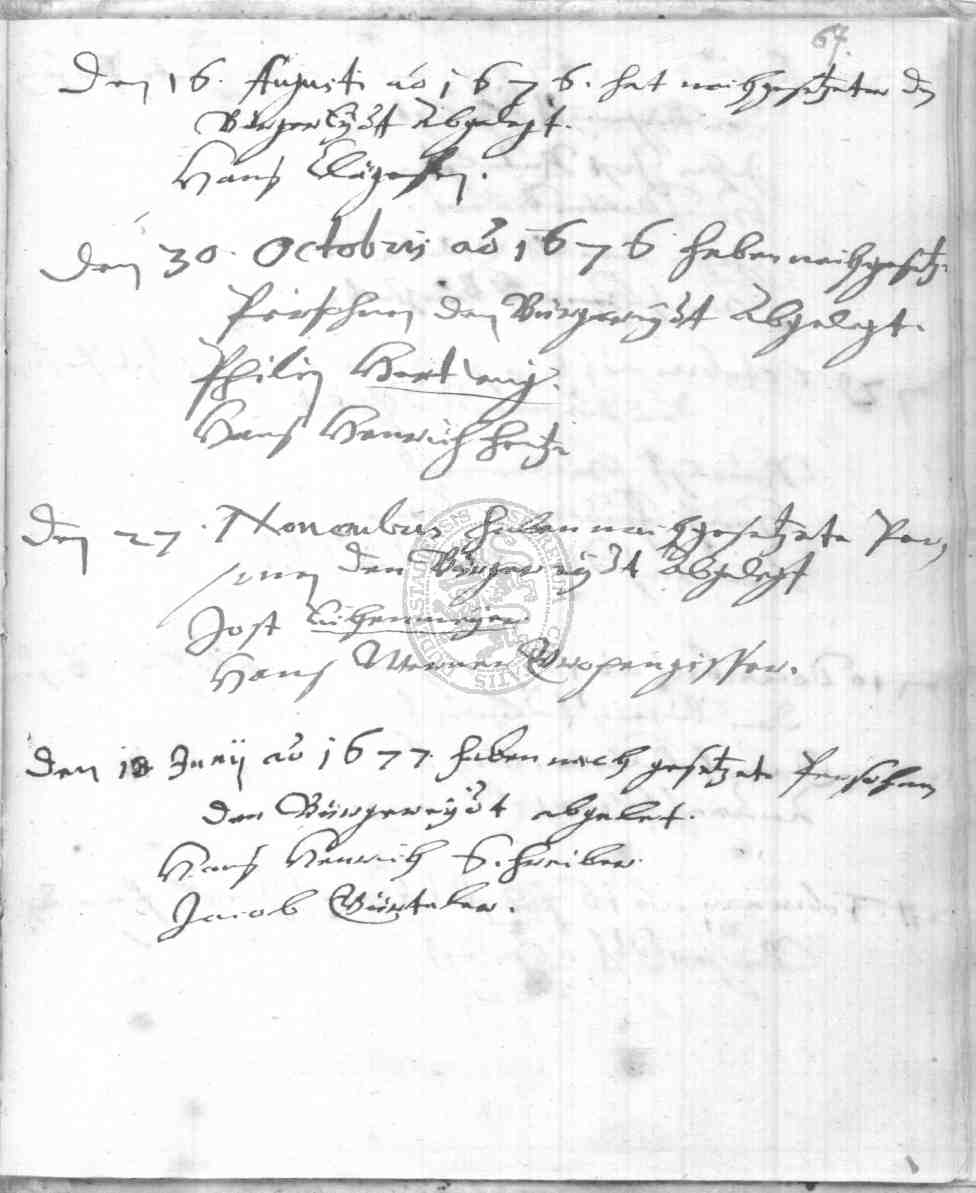 67.
Den 16. Augusti ao 1676. hat nachgesetzeter den
Bürgereydt abgelegt.
Hans
Den 30. Octobris ao 1676 haben nachgesetz.
Persohnen den Bürgereydt abgelegt.
Philip Hartwig.
Hans Henrich
Den 27. Novembris haben nachgesetzete Per,
sonen den Bürgereydt abgelegt
Jost
Hans Werner Gropengisser.
Den 18 Junij ao 1677. haben nach gesetzete Persohnen
den Bürgereydt abgelet.
Hans Henrich Schreiber.
Jacob